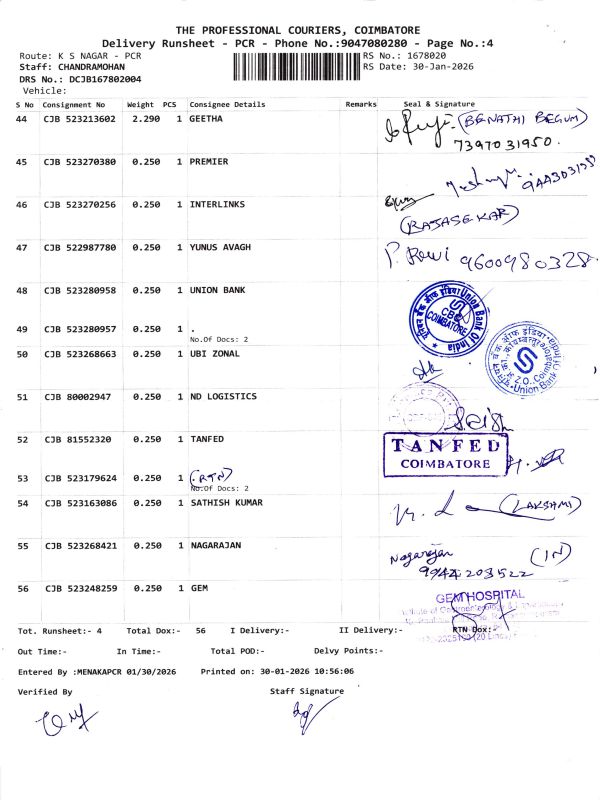 THE PROFESSIONAL COURIERS, COIMBATORE
Delivery Runsheet - PCR - Phone No.:9047080280 - Page No.:4
Route: K S NAGAR - PCR
RS No.: 1678020
Staff: CHANDRAMOHAN
RS Date: 30-Jan-2026
DRS No.: DCJB167802004
Vehicle:
S No Consignment No Weight PCS Consignee Details Remarks Seal & Signature
44 CJB 523213602 2.290 1 GEETHA (BENATHI BEGUM)
7397031950.
45 CJB 523270380 0.250 1 PREMIER
46 CJB 523270256 0.250 1 INTERLINKS
(RAJASEKAR)
47 CJB 522987780 0.250 1 YUNUS AVAGH P. Ravi 9600980328.
48 CJB 523280958 0.250 1 UNION BANK
यूनियन बैंक ऑफ इंडिया Union Bank Of India
CBE
COIMBATORE
49 CJB 523280957 0.250 1 .
No.Of Docs: 2
Z.O., Union Bank Of India
50 CJB 523268663 0.250 1 UBI ZONAL
51 CJB 80002947 0.250 1 ND LOGISTICS
52 CJB 81552320 0.250 1 TANFED
TANFED
COIMBATORE
53 CJB 523179624 0.250 1 (RTN)
No.Of Docs: 2
54 CJB 523163086 0.250 1 SATHISH KUMAR (LAKSHMI)
55 CJB 523268421 0.250 1 NAGARAJAN
Nagarajan (IN)
9944203522
56 CJB 523248259 0.250 1 GEM
GEM HOSPITAL
Tot. Runsheet:- 4 Total Dox:- 56 I Delivery:- II Delivery:- RTN Dox:-
Out Time:- In Time:- Total POD:- Delvy Points:-
Entered By :MENAKAPCR 01/30/2026 Printed on: 30-01-2026 10:56:06
Verified By Staff Signature